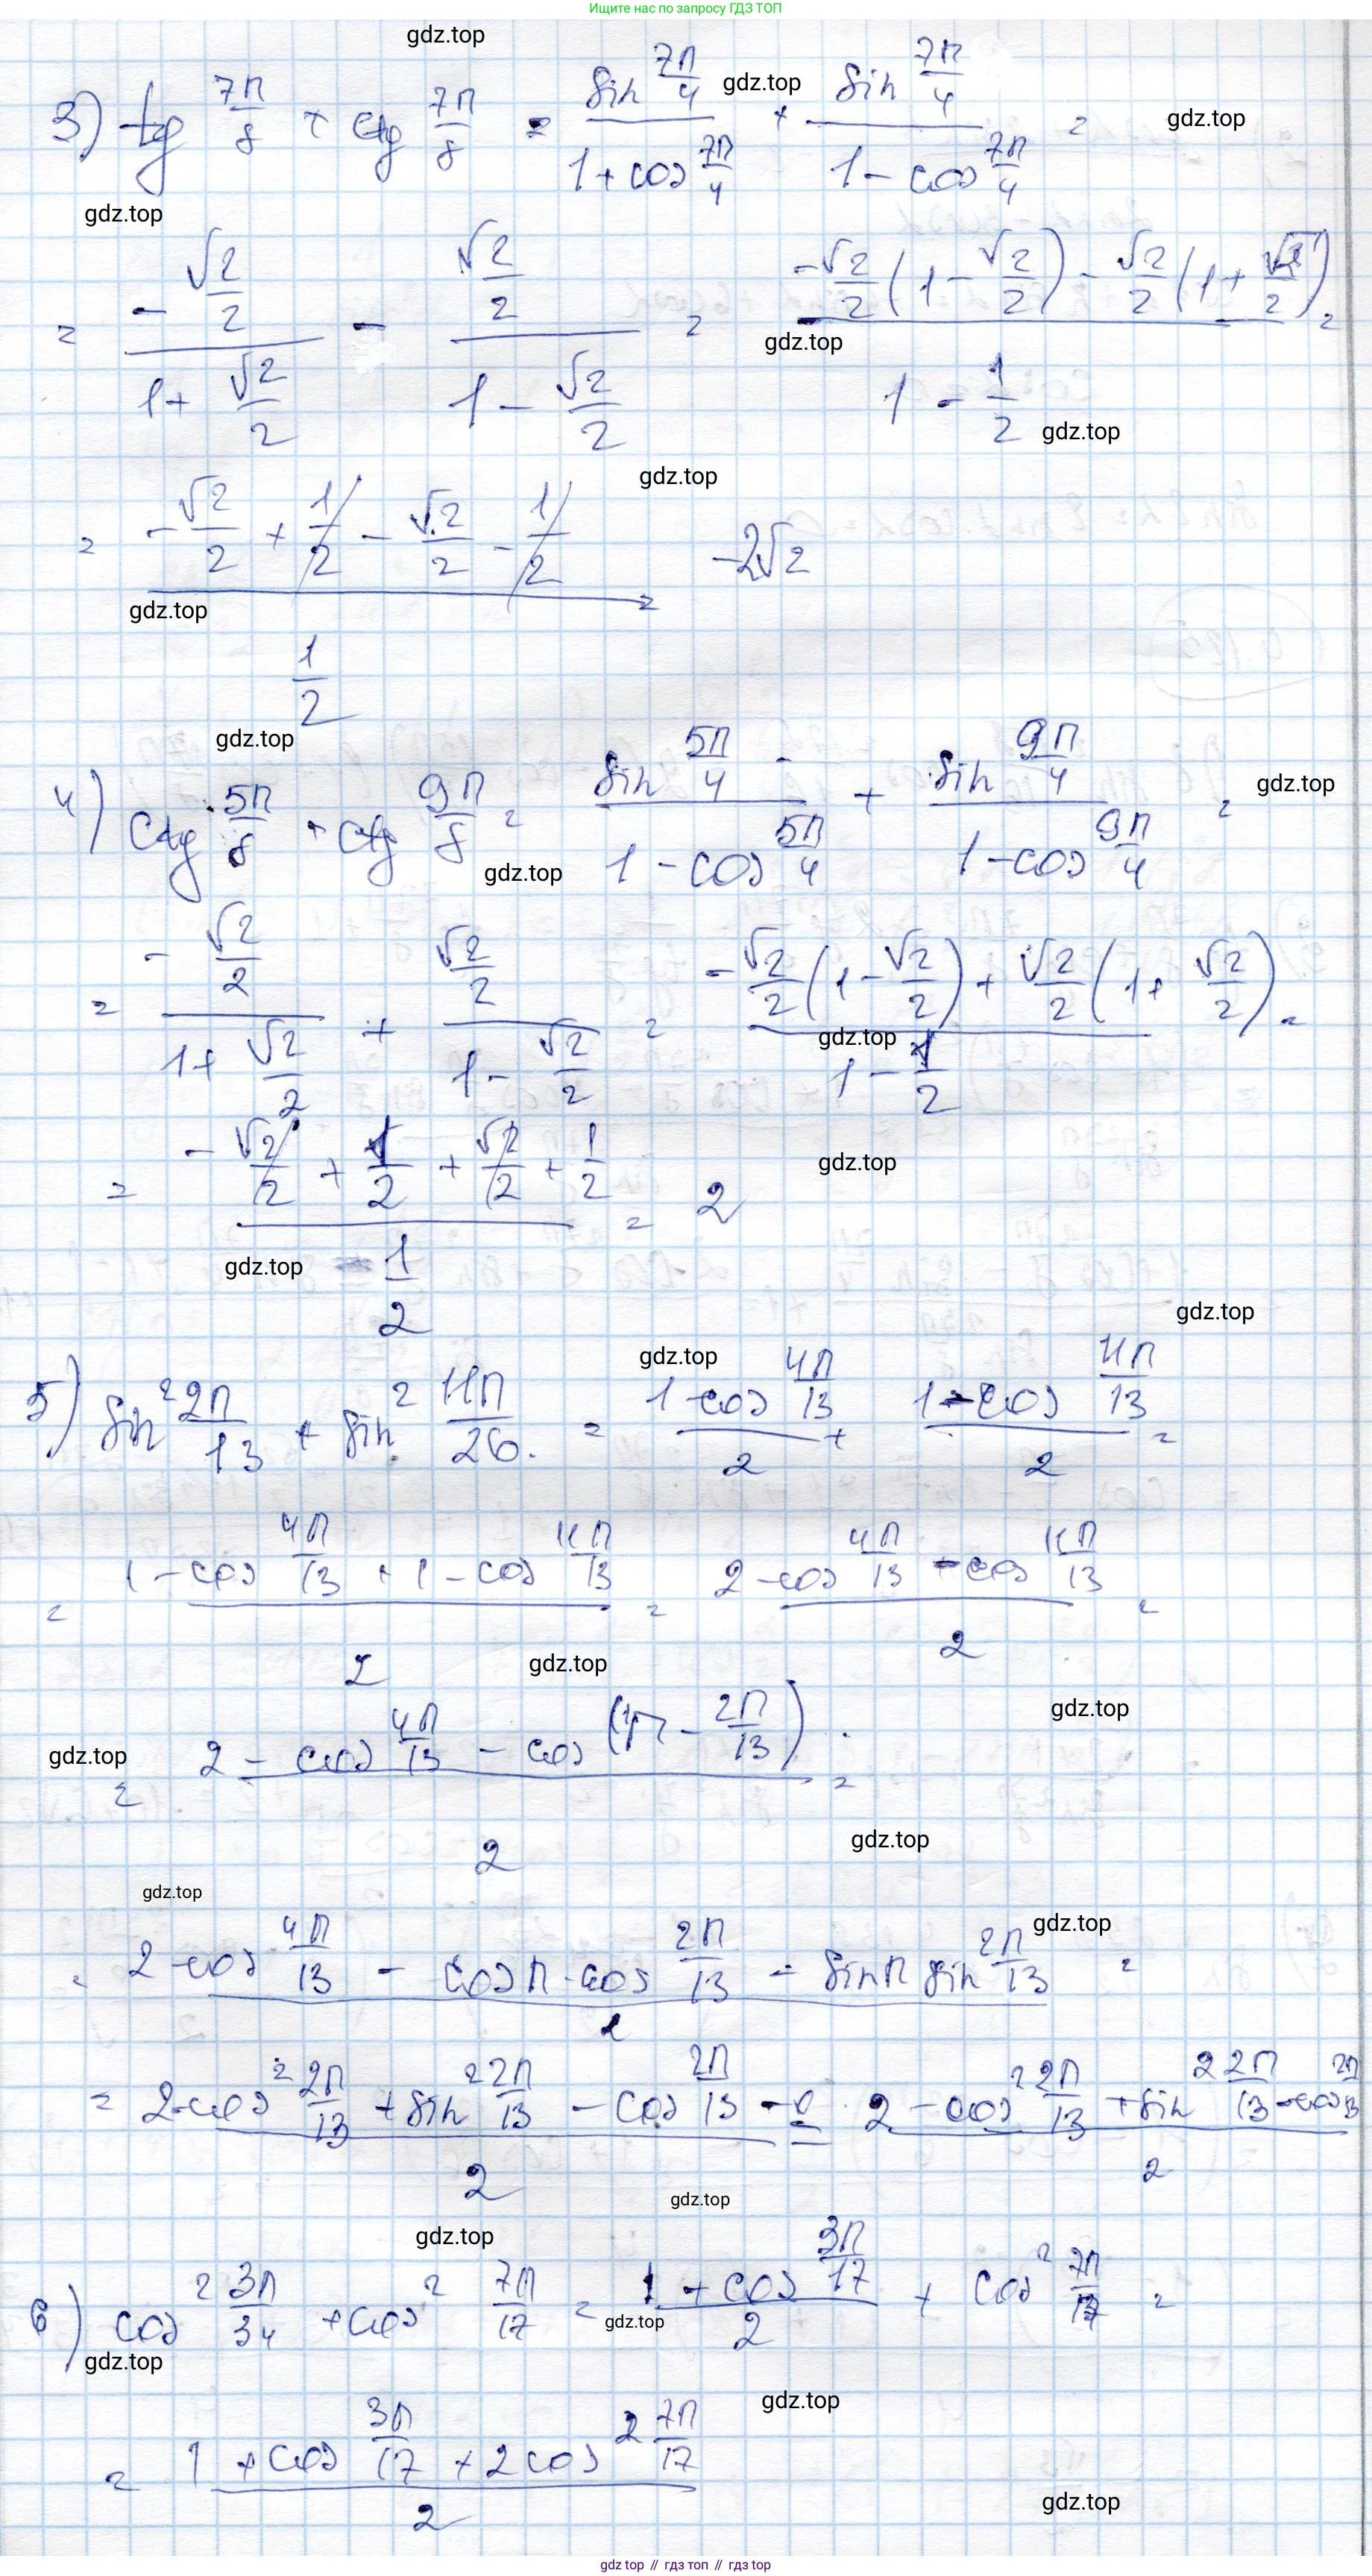 Ищите нас по запросу ГДЗ ТОП
gdz.top
3) tg 7π/8 + ctg 7π/8 = sin 7π/4 / (1 + cos 7π/4) + sin 7π/4 / (1 - cos 7π/4) =
gdz.top
gdz.top
gdz.top
= (-√2/2) / (1 + √2/2) - (√2/2) / (1 - √2/2) = (-√2/2 (1 - √2/2) - √2/2 (1 + √2/2)) / (1 - 1/2) =
gdz.top
gdz.top
gdz.top
= (-√2/2 + 1/2 - √2/2 - 1/2) / (1/2) = -2√2
gdz.top
gdz.top
4) ctg 5π/8 + ctg 9π/8 = sin 5π/4 / (1 - cos 5π/4) + sin 9π/4 / (1 - cos 9π/4) =
gdz.top
gdz.top
= (-√2/2) / (1 + √2/2) + (√2/2) / (1 - √2/2) = (-√2/2 (1 - √2/2) + √2/2 (1 + √2/2)) / (1 - 1/2) =
gdz.top
= (-√2/2 + 1/2 + √2/2 + 1/2) / (1/2) = 2
gdz.top
gdz.top
gdz.top
gdz.top
5) sin² 2π/13 + sin² 11π/26 = (1 - cos 4π/13) / 2 + (1 - cos 11π/13) / 2 =
= (1 - cos 4π/13 + 1 - cos 11π/13) / 2 = (2 - cos 4π/13 - cos 11π/13) / 2 =
gdz.top
gdz.top
gdz.top
= (2 - cos 4π/13 - cos (π - 2π/13)) / 2 =
gdz.top
gdz.top
gdz.top
= (2 - cos 4π/13 - cos π · cos 2π/13 - sin π sin 2π/13) / 2 =
= (2 - cos² 2π/13 + sin² 2π/13 - cos 2π/13) / 2 = (2 - cos² 2π/13 + sin² 2π/13 - cos 2π/13) / 2
gdz.top
gdz.top
6) cos² 3π/34 + cos² 7π/17 = (1 + cos 3π/17) / 2 + cos² 7π/17 =
gdz.top
gdz.top
gdz.top
= (1 + cos 3π/17 + 2 cos² 7π/17) / 2
gdz.top
gdz top // гдз топ // gdz top